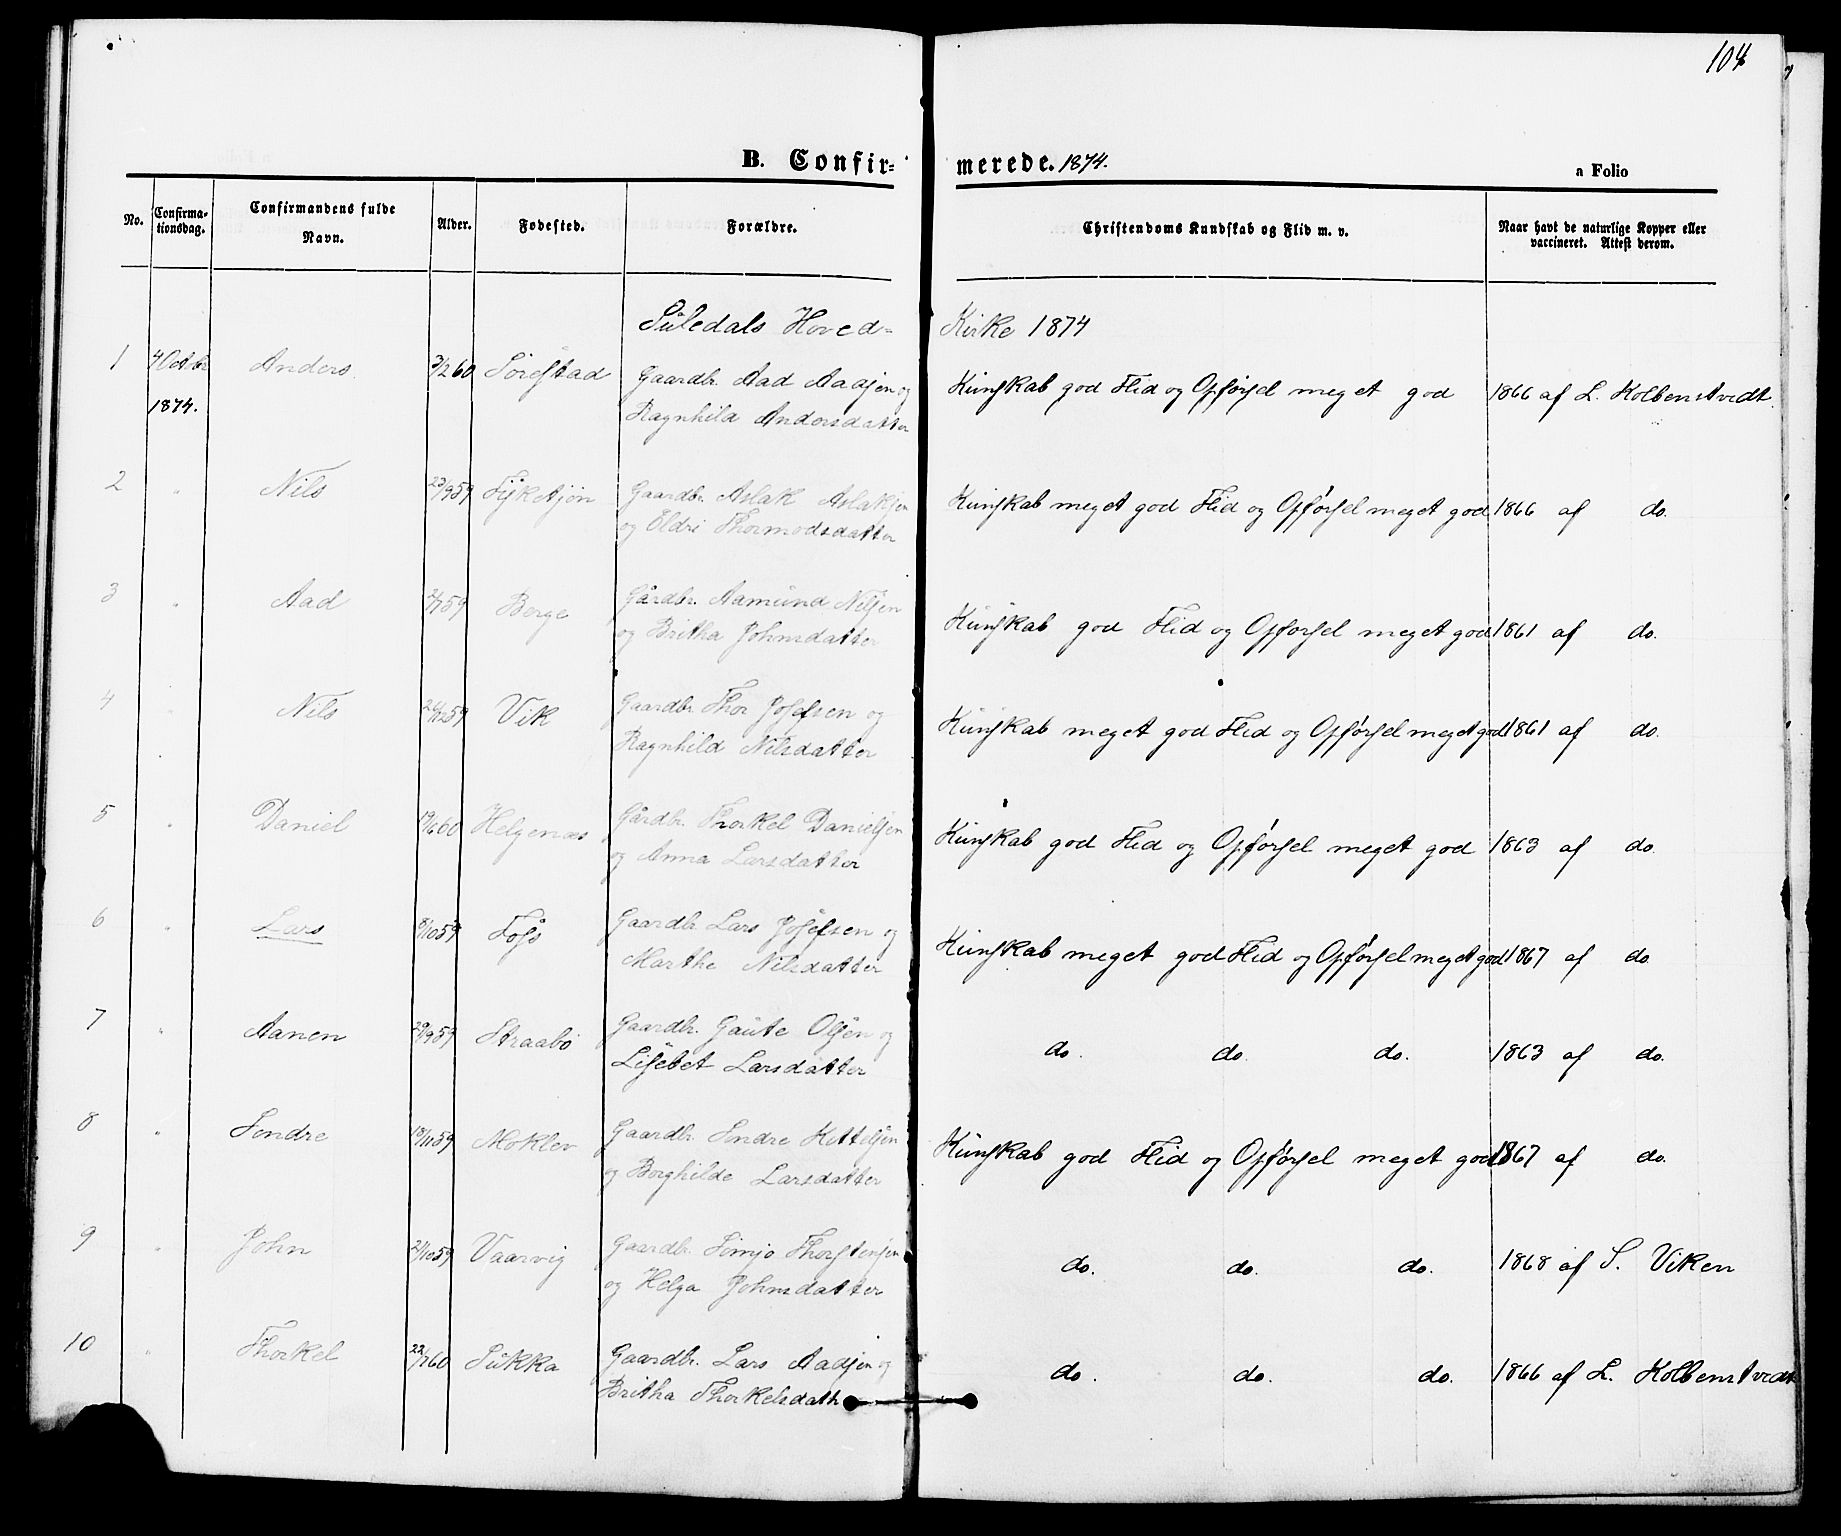 104
B. Confir-
merede. 1874.
a Folio
No.
Confirma-
tionsdag.
Confirmandens fulde
Navn.
Alder.
Fødested.
Forældre.
Christendoms Kundskab og Flid m. v.
Naar havt de naturlige Kopper eller
vaccineret. Attest derom.
Suledals Hoved-
Kirke 1874
1 4 Octbr 1874. Anders 3/2 60 Sørestad
Gaardbr. Aad Aadsen og
Ragnhild Andersdatter
Kunskab god Flid og Opførsel meget god 1866 af L. Kolbenstvedt.
2 " Nils 23/9 59
Gaardbr. Aslak Aslaksen
og Eldri Thormodsdatter
Kunskab meget god Flid og Opførsel meget god 1866 af do.
3 " Aad Berge
Gårdbr. Aamund Nilsen
og Britha Johnsdatter
Kunskab god Flid og Opførsel meget god 1861 af do.
4 " Nils Vik
Gaardbr. Thor Josefsen og
Ragnhild Nilsdatter
Kunskab meget god Flid og Opførsel meget god 1861 af do.
5 " Daniel 19/6 60 Helgenæs
Gårdbr. Thorkel Danielsen
og Anna Larsdatter
Kunskab god Flid og Opførsel meget god 1863 af do.
6 " Lars 8/10 59
Gaardbr. Lars Josefsen og
Marthe Nilsdatter
Kunskab meget god Flid og Opførsel meget god 1867 af do.
7 " Aanen 29/9 59 Straabø
Gaardbr. Gaute Olsen og
Lisebet Larsdatter
do. do. do. 1863 af do.
8 " Sendre 18/11 59 Moklev
Gaardbr. Sendre Kittelsen
og Borghilde Larsdatter
Kunskab god Flid og Opførsel meget god 1867 af do.
9 " John 21/10 59 Vaarvig
Gaardbr. Thorstensen
og Helga Johnsdatter
do. do. do. 1868 af S. Viken
10 " Thorkel Sukka
Gaardbr. Lars Aadsen og
Britha Thorkelsdatt
do. do. do. 1866 af L. Kolbenstvedt